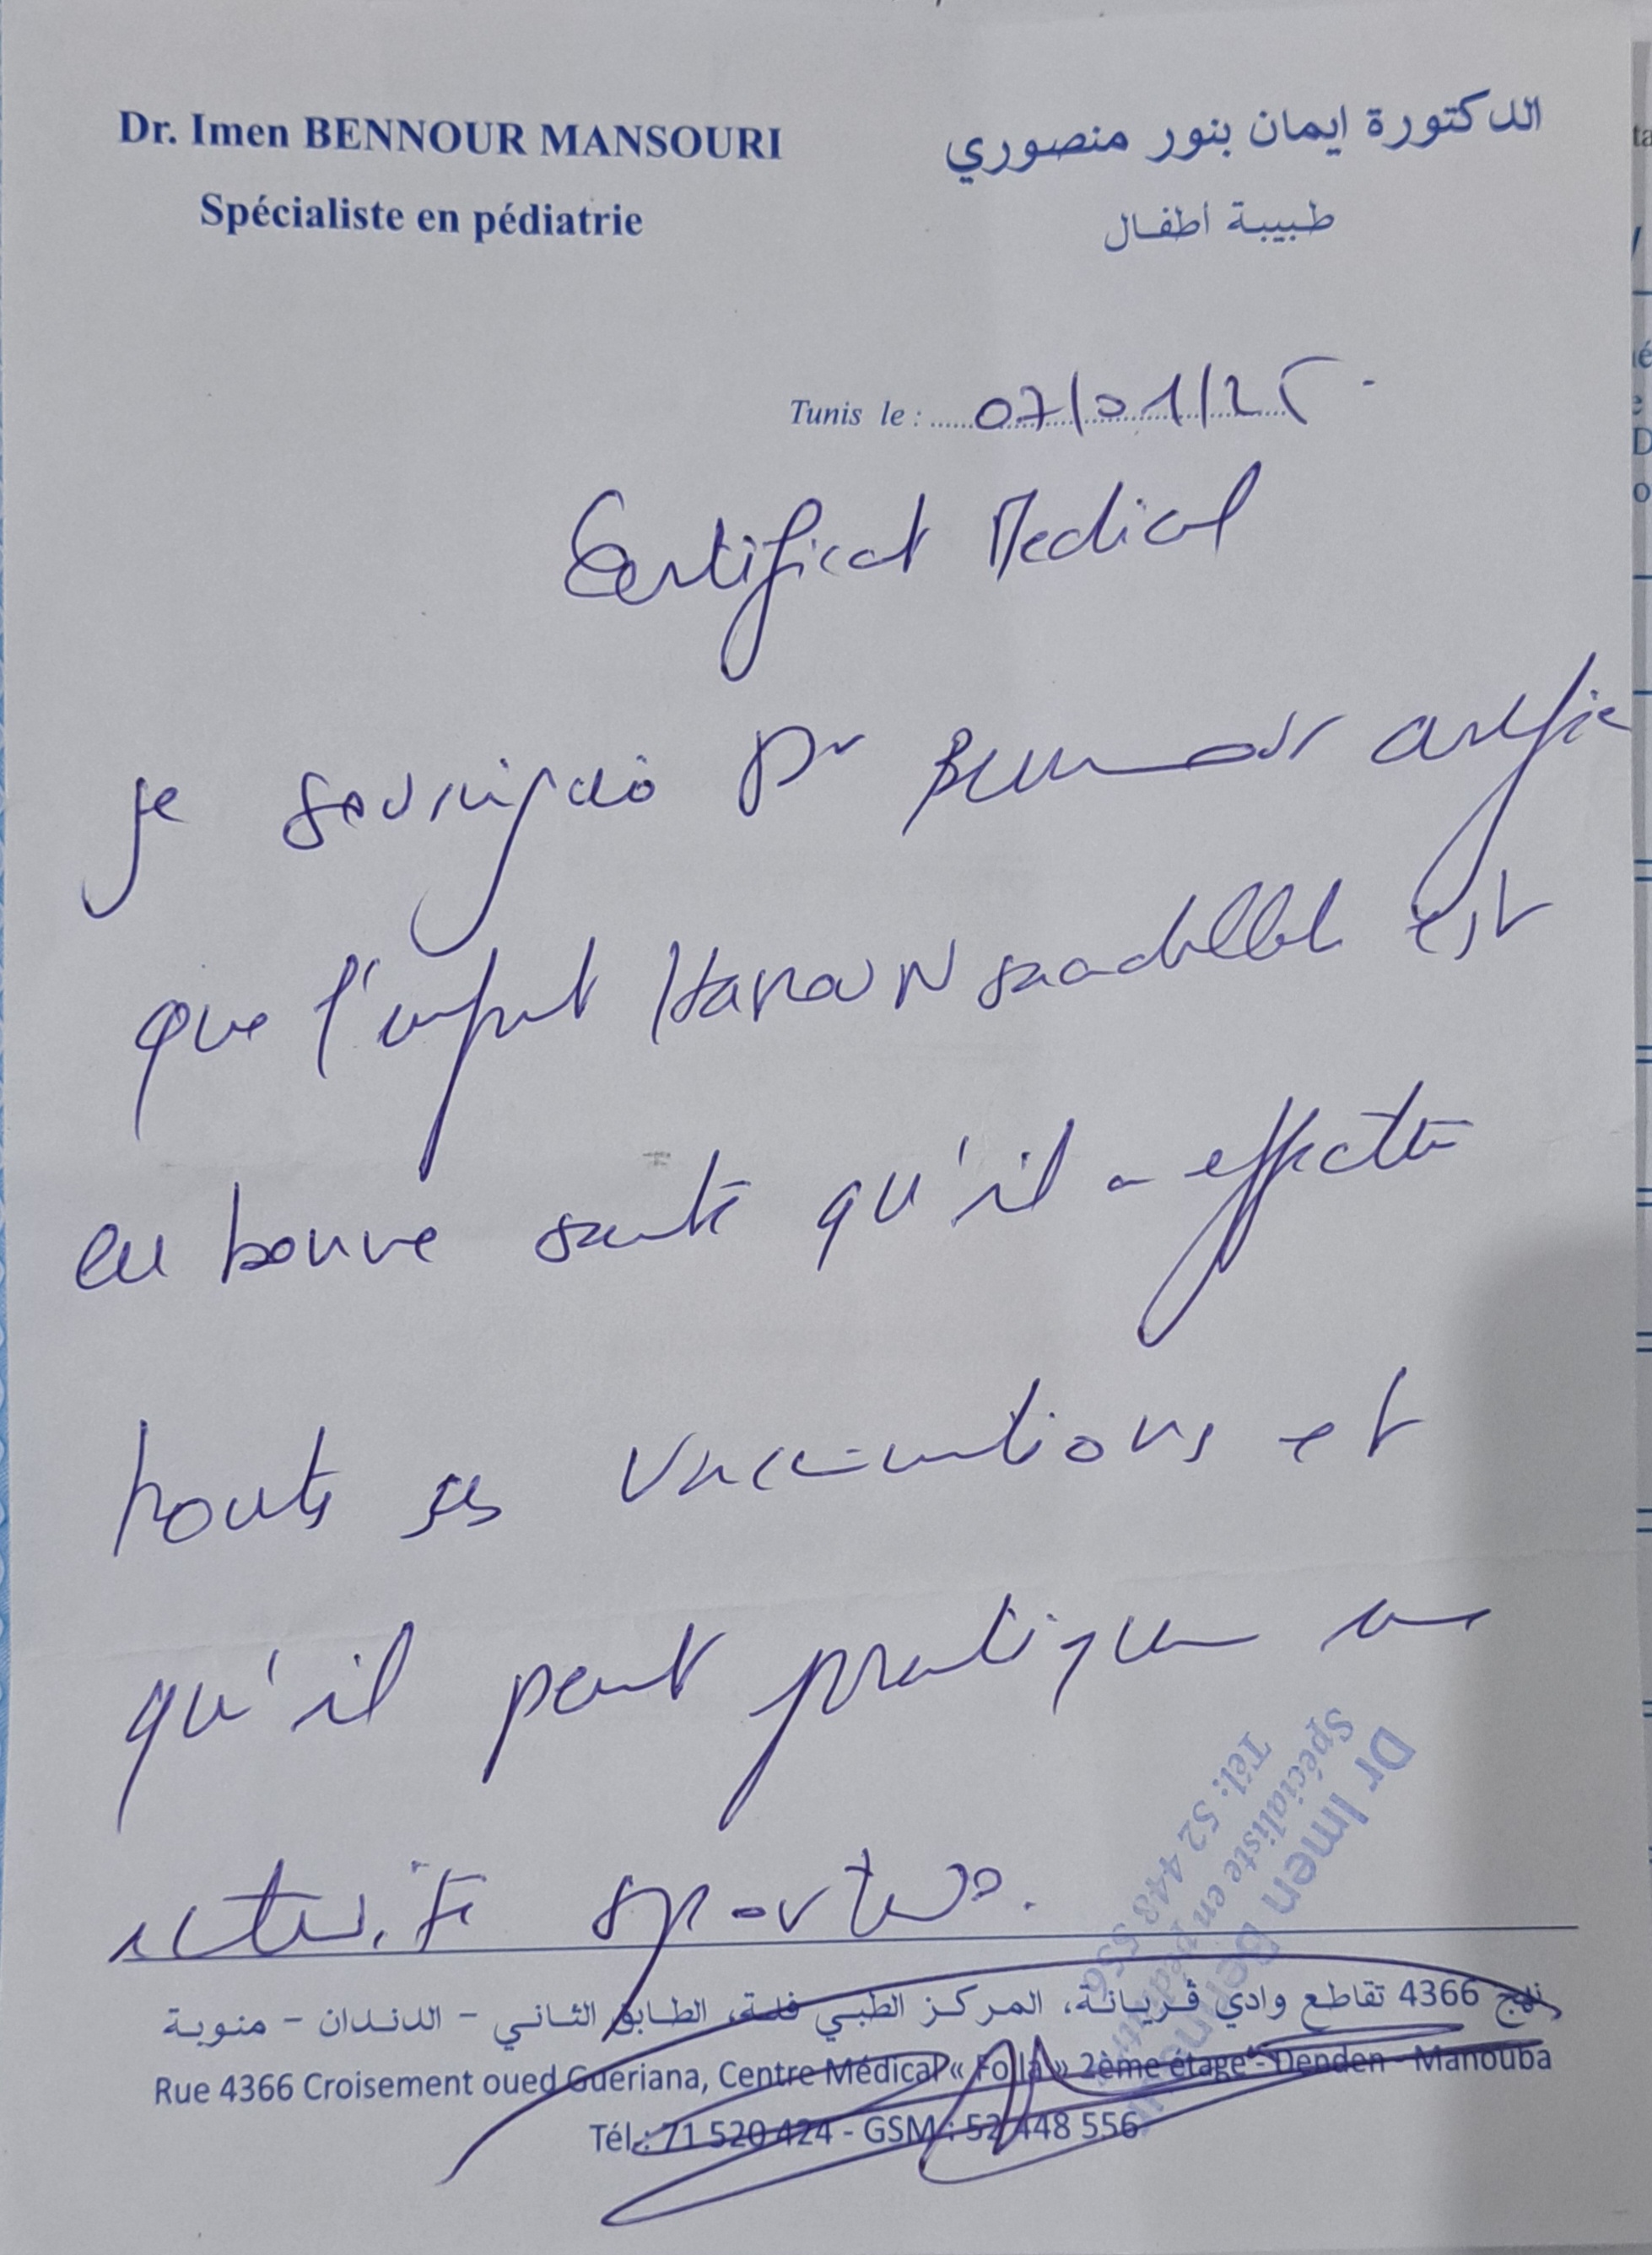 Dr. Imen BENNOUR MANSOURI
Spécialiste en pédiatrie
الدكتورة ايمان بنور منصوري
طبيبة أطفال
Tunis le : 07/01/25
Certificat Medical
Je soussignée Dr Bennour certifie
que l'enfant est
en bonne santé qu'il a effectué
toutes ses vaccinations et
qu'il peut pratiquer une
activité sportive.
Dr Imen Bennour
Spécialiste en pédiatrie
Tél: 52 448 556
نهج 4366 تقاطع وادي ڤريانة، المركز الطبي فلة، الطابق الثاني - الدندان - منوبة
Rue 4366 Croisement oued Gueriana, Centre Médical « Folla » 2ème étage - Denden - Manouba
Tél.: 71 520 424 - GSM : 52 448 556